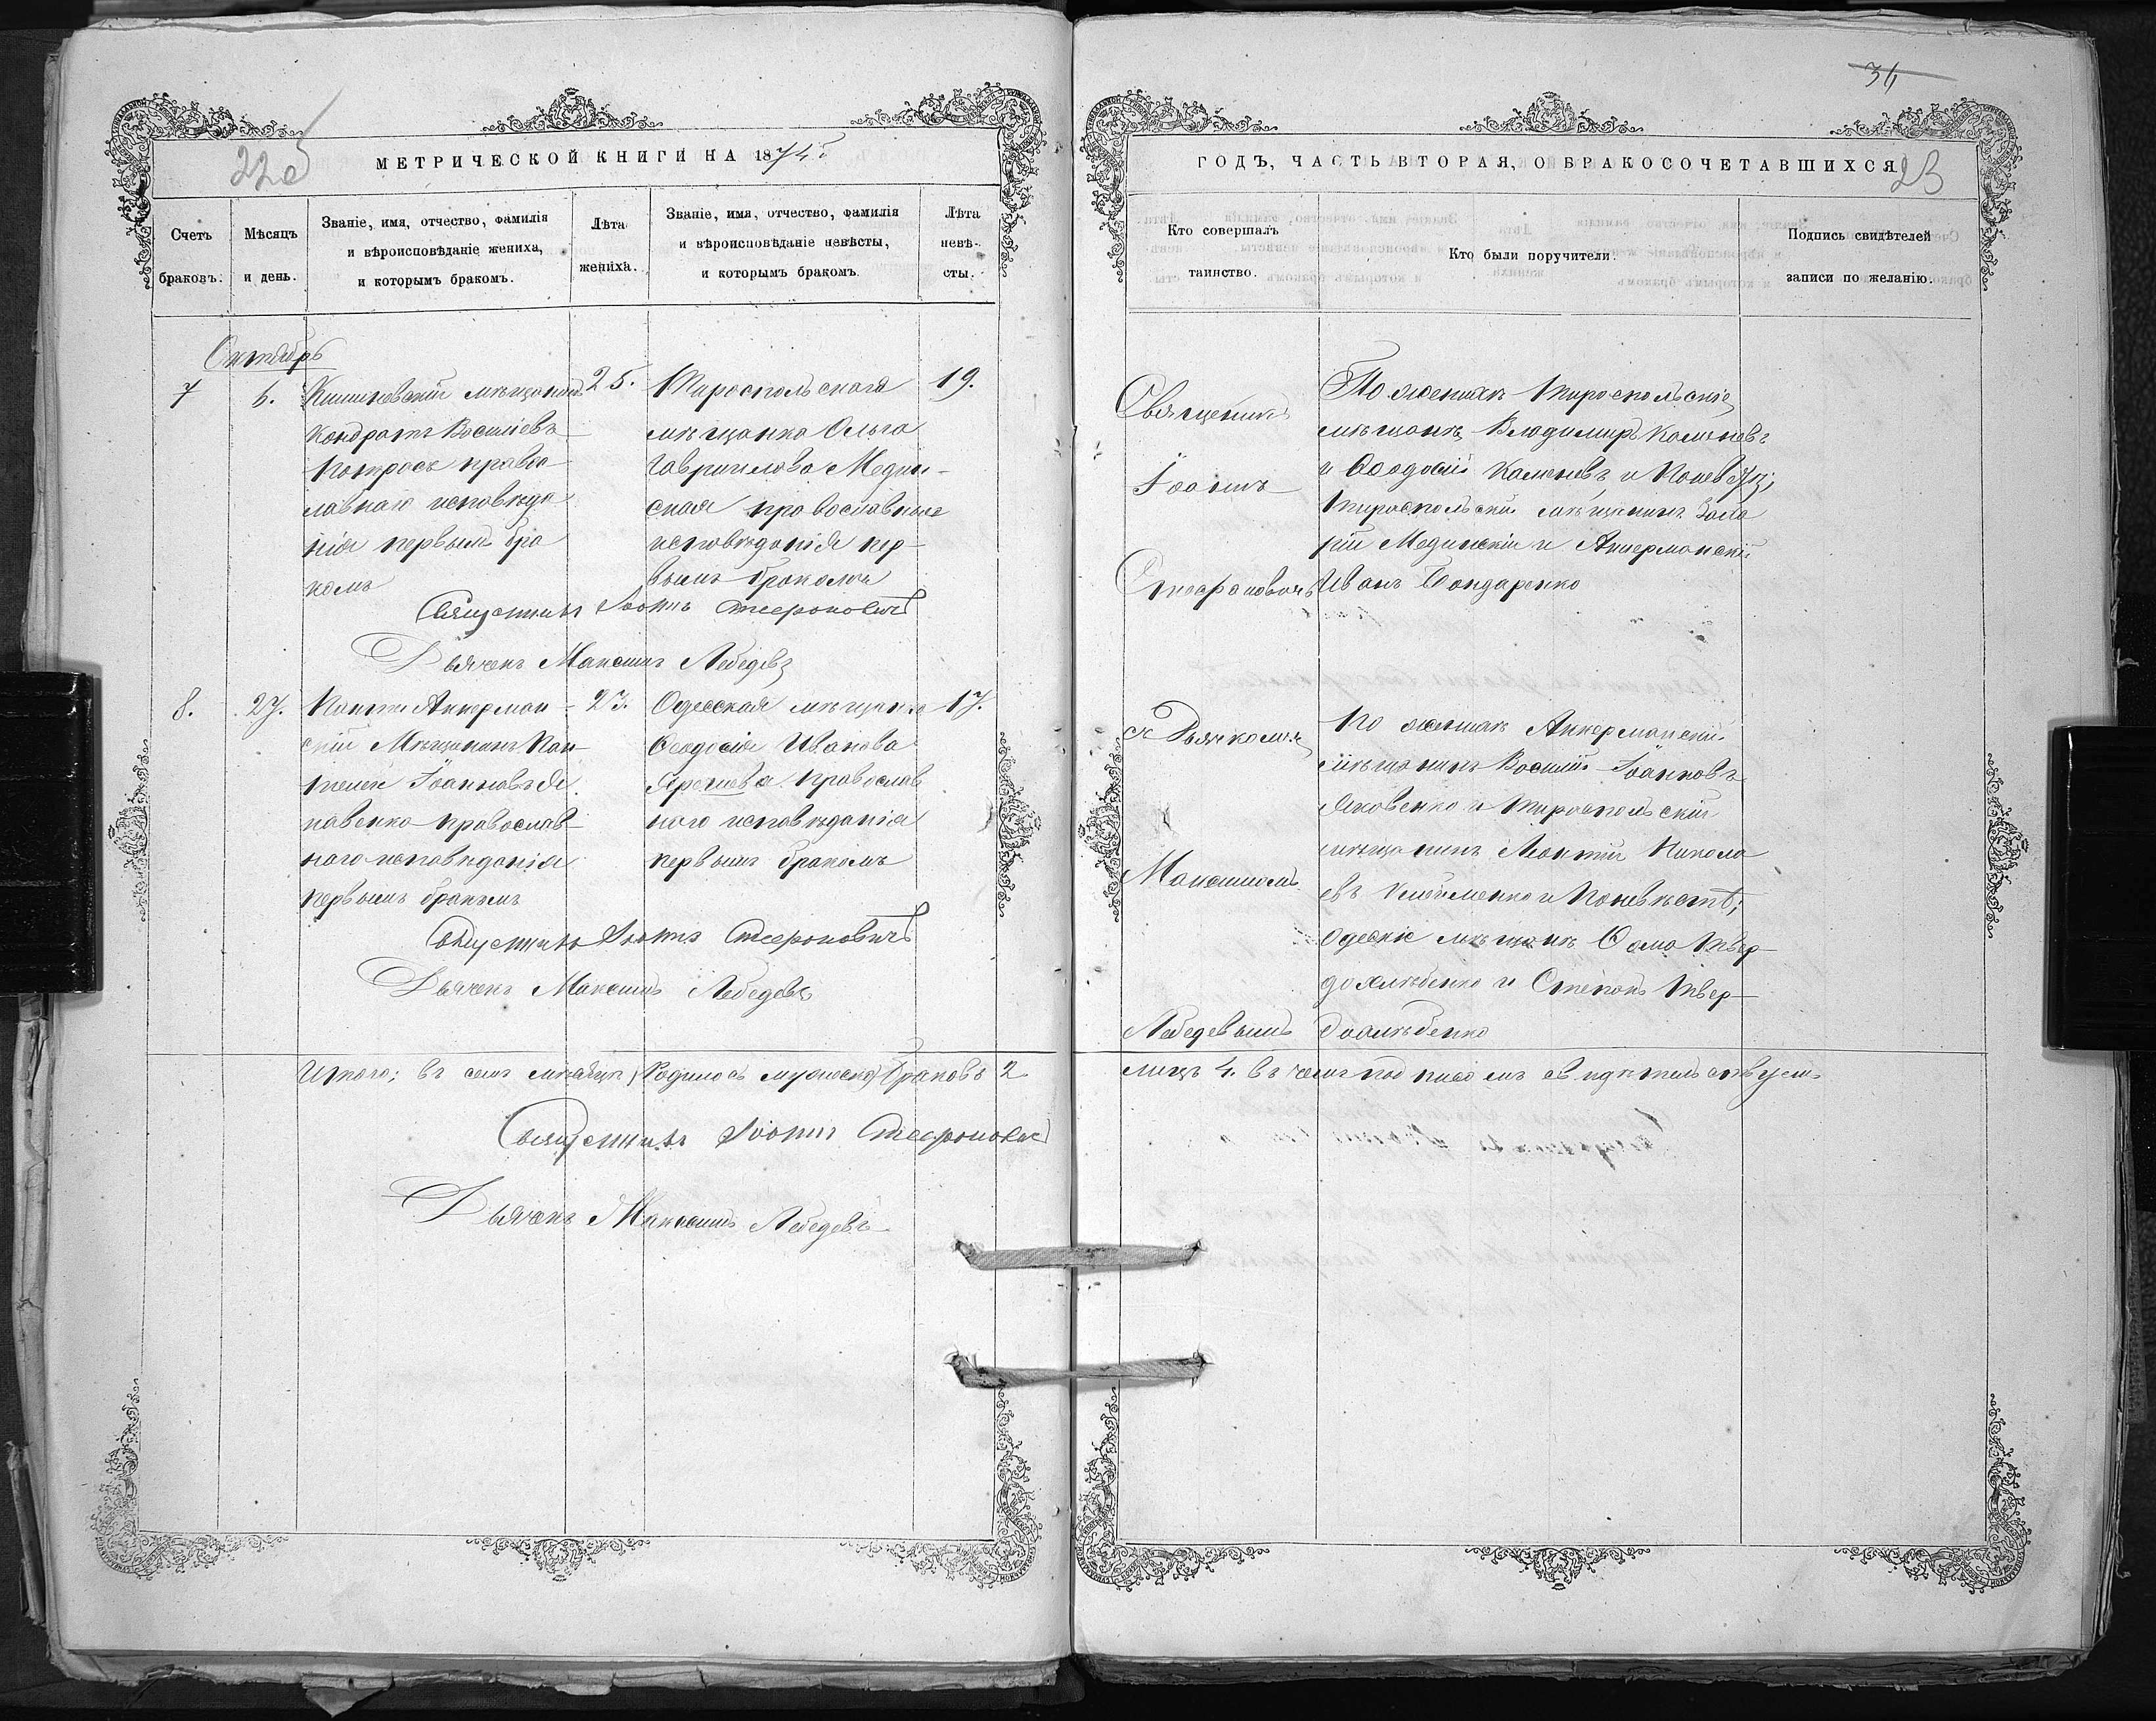 22об
МЕТРИЧЕСКОЙ КНИГИ НА 1875
Счетъ
браковъ.
Мѣсяцъ
и день.
Званіе, имя, отчество, фамилія
и вѣроисповѣданіе жениха,
и которымъ бракомъ.
Лѣта
жениха.
Званіе, имя, отчество, фамилія
и вѣроисповѣданіе невѣсты,
и которымъ бракомъ.
Лѣта
невѣ-
сты.
Октябрь
7
6.
Кишиневскій мѣщанинъ
Кондратъ Василіевъ
правос
лавнаго исповѣда
нія первымъ бра
комъ
25.
Тираспольская
мѣщанка Ольга
Гавриилова Медин-
ская православнаго
исповѣданія пер-
вымъ бракомъ
19.
Священникъ Іоаннъ Стефановичъ
Дьячекъ Максимъ Лебедевъ
8.
27.
Аккерман-
скій Мѣщанинъ Пан-
телей Іоанновъ
павенко православ-
наго исповѣданія
первымъ бракомъ
23.
Одесская мѣщанка
Ѳеодосія Иванова
православ
ного исповѣданія
первымъ бракомъ
17.
Священникъ Іоаннъ Стефановичъ
Дьячекъ Максимъ Лебедевъ
Итого: въ семъ мѣсяцѣ браковъ 2
Священникъ Іоаннъ Стефановичъ
Дьячекъ Максимъ Лебедевъ
34
ГОДЪ, ЧАСТЬ ВТОРАЯ, О БРАКОСОЧЕТАВШИХСЯ.
23
Кто совершалъ
таинство.
Кто были поручители.
Подпись свидѣтелей
записи по желанію.
Священникъ
Іоаннъ
Стефановичъ
По женихѣ Тираспольскіе
мѣщане Владимиръ Каменевъ
и Ѳеодосій Каменевъ и
Тираспольскій мѣщанинъ
Мединскій и Аккерманскій
Иванъ Бондаренко
съ Дьячкомъ
Максимомъ
Лебедевымъ
По женихѣ Аккерманскій
мѣщанинъ Василій Іоанновъ
Яковенко и Тираспольскій
мѣщанинъ Леонтій Никола
евъ и По невѣстѣ;
Одескіе мѣщане Ѳома Твер-
дохлѣбенко и Степанъ Твер-
дохлѣбенко
лицъ 4. въ чемъ подписомъ свидѣтельствуемъ